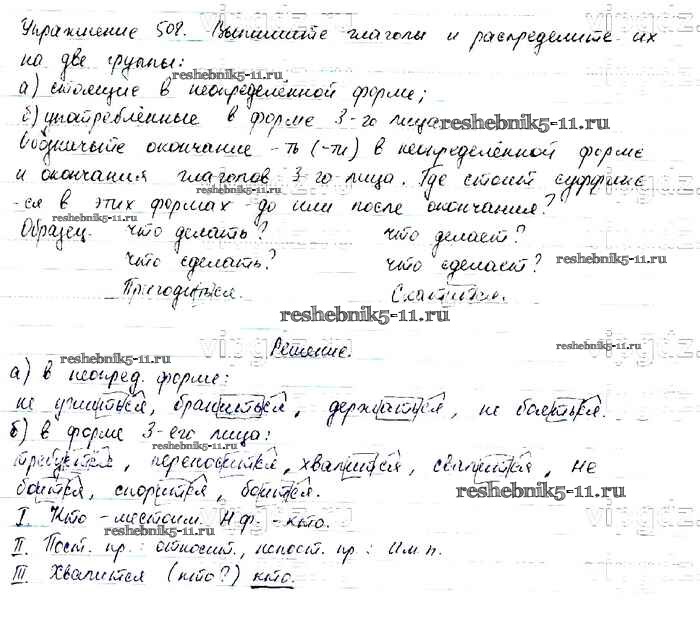 Упражнение 508. Выпишите глаголы и распределите их
на две группы:
reshebnik5-11.ru
а) стоящие в неопределённой форме;
б) употреблённые в форме 3-го лица
reshebnik5-11.ru
Обозначьте окончание -ть (-ти) в неопределённой форме
и окончания глаголов 3-го лица. Где стоит суффикс
reshebnik5-11.ru
-ся в этих формах - до или после окончания?
reshebnik5-11.ru
Образец. что делать? что делает?
что сделать? что сделает?
reshebnik5-11.ru
Пригодиться. Скатится.
reshebnik5-11.ru
Решение.
reshebnik5-11.ru
а) в неопред. форме:
не учиться, браниться, держаться, не
б) в форме 3-его лица:
reshebnik5-11.ru
требуется, хвалится, не
боится, спорится, боится.
reshebnik5-11.ru
I Кто - местоим. Н.ф. - кто.
reshebnik5-11.ru
II. Пост. пр.: относит., непост. пр.: Им.п.
III Хвалится (кто?) кто.